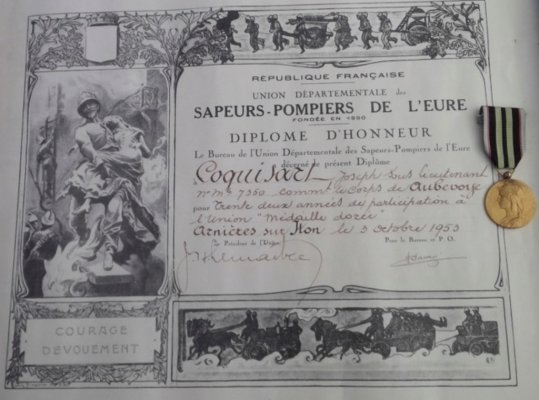 RÉPUBLIQUE FRANÇAISE
UNION DÉPARTEMENTALE des
SAPEURS-POMPIERS DE L'EURE
FONDÉE EN 1890
DIPLOME D'HONNEUR
Le Bureau de l'Union Départementale des Sapeurs-Pompiers de l'Eure
décerne le présent Diplôme
à Coquisart Joseph Sous Lieutenant
Nº Mle 7350 commt le Corps de Aubevoye
pour trente deux années de participation à
l'Union "Médaille dorée"
Arnières sur Iton le 3 Octobre 1953
Le Président de l'Union
Pour le Bureau et P. O.
COURAGE
DÉVOUEMENT